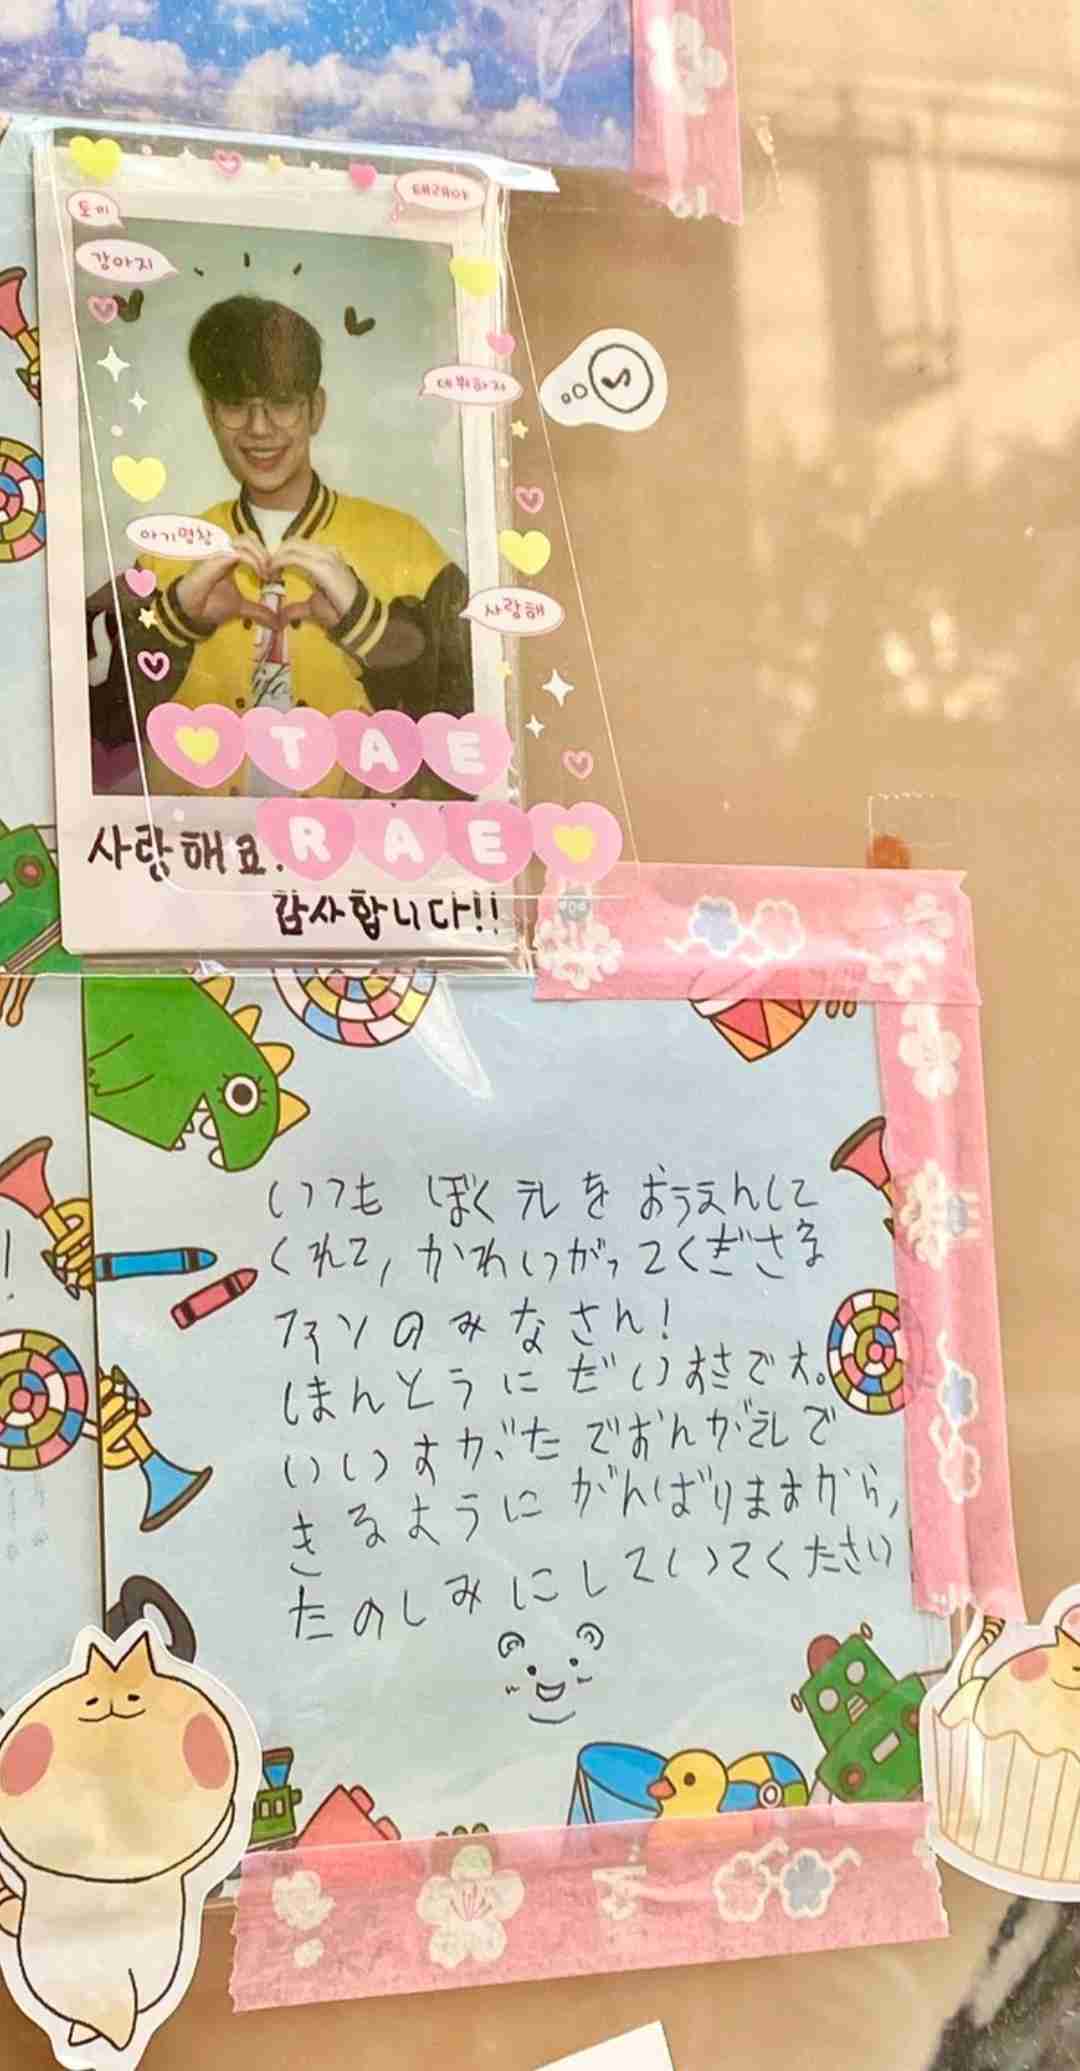 토끼
태래야
강아지
데뷔하자
아기명창
사랑해
TAE
RAE
사랑해요.
감사합니다!!
いつも ぼくテレを おうえんして
くれて, かわいがってくださる
ファンのみなさん!
ほんとうに だいすきです。
いいすがたでおんがえしで
きるように がんばりますから,
たのしみにしていてください